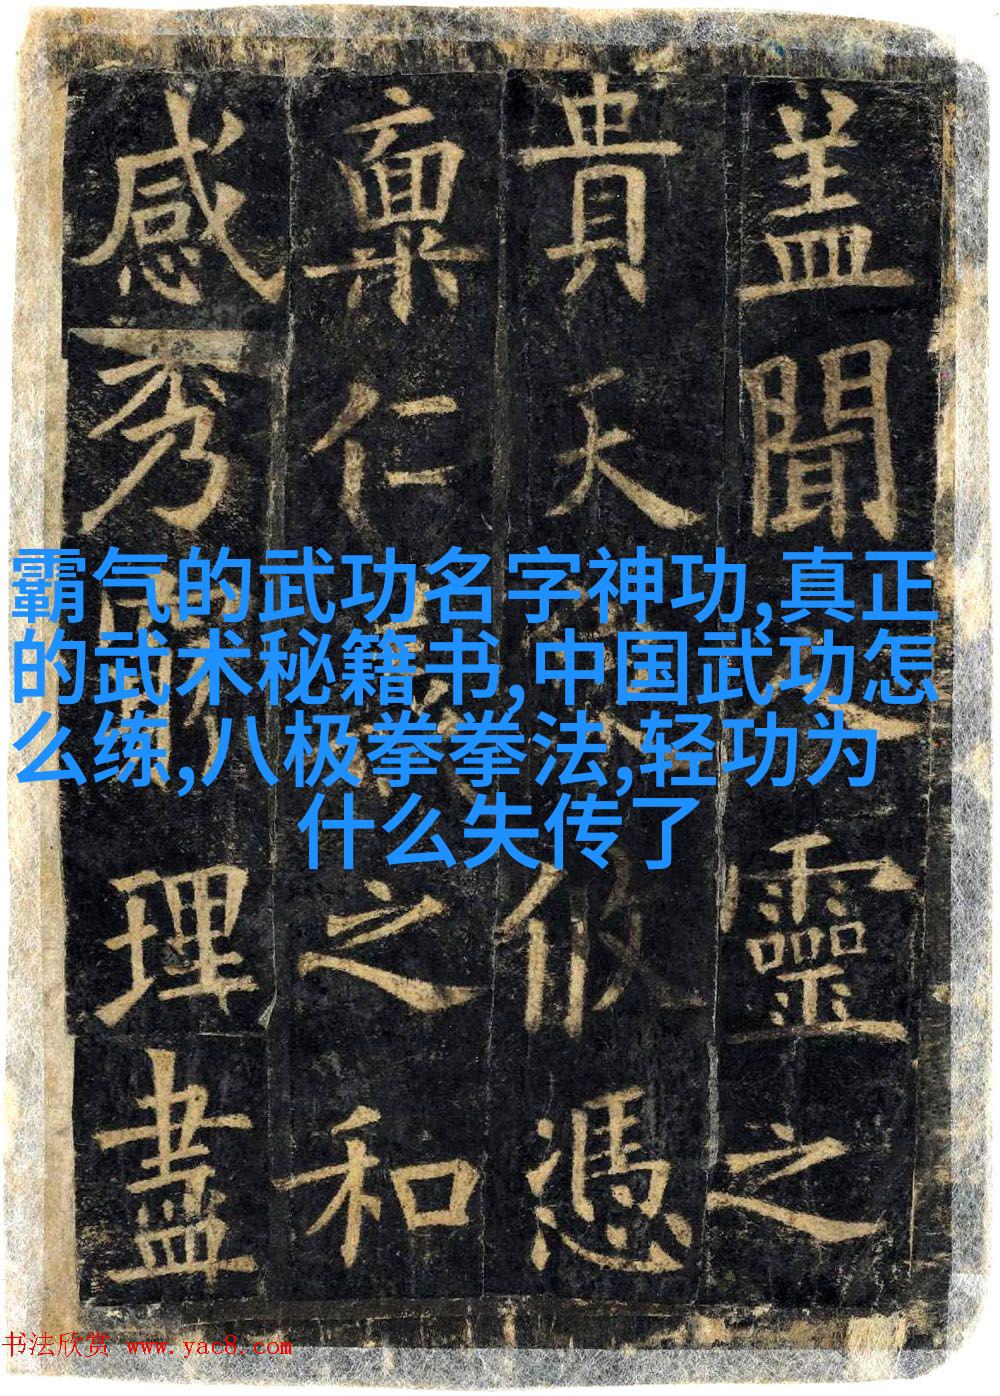 盖聞靈之
貴天攸憑
稟仁之和
感秀理盡
霸气的武功名字神功,真正
的武术秘籍书,中国武功怎
么练,八极拳拳法,轻功为
什么失传了
书法欣赏 www.yac8.com